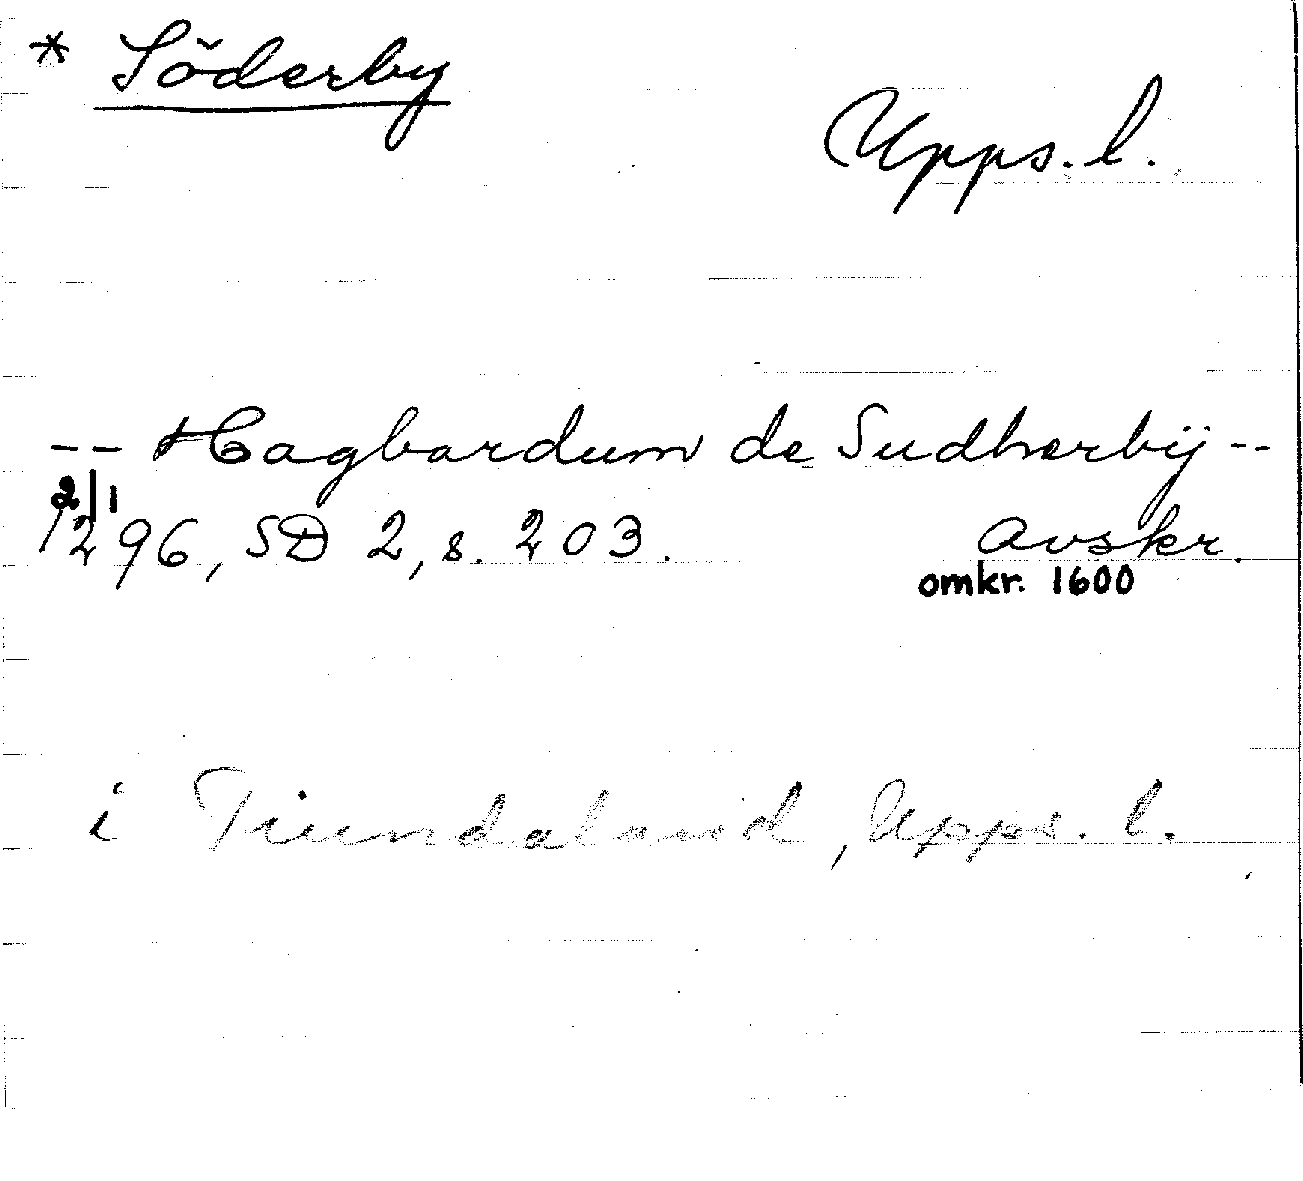 * Söderby
Upps. l.
-- Hagbardum de Sudherbÿ --
2/1
1296, SD 2, s. 203. avskr.
omkr. 1600
i Tiundaland, Upps. l.